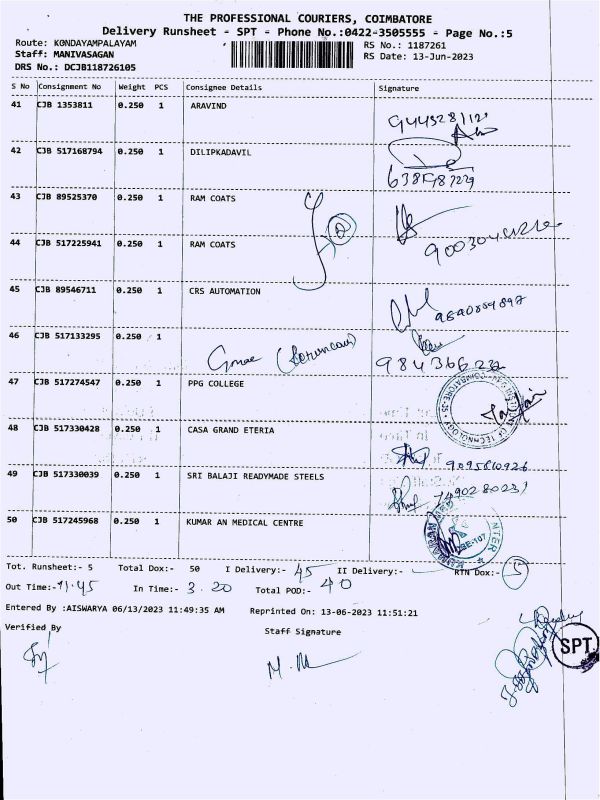 THE PROFESSIONAL COURIERS, COIMBATORE
Delivery Runsheet - SPT - Phone No.:0422-3505555 - Page No.:5
Route: KONDAYAMPALAYAM
RS No.: 1187261
Staff: MANIVASAGAN
RS Date: 13-Jun-2023
DRS No.: DCJB118726105
S No Consignment No Weight PCS Consignee Details Signature
41 CJB 1353811 0.250 1 ARAVIND
42 CJB 517168794 0.250 1 DILIPKADAVIL
43 CJB 89525370 0.250 1 RAM COATS
44 CJB 517225941 0.250 1 RAM COATS
45 CJB 89546711 0.250 1 CRS AUTOMATION
46 CJB 517133295 0.250 1
47 CJB 517274547 0.250 1 PPG COLLEGE
48 CJB 517330428 0.250 1 CASA GRAND ETERIA
49 CJB 517330039 0.250 1 SRI BALAJI READYMADE STEELS
50 CJB 517245968 0.250 1 KUMAR AN MEDICAL CENTRE
Tot. Runsheet:- 5 Total Dox:- 50 I Delivery:- 45 II Delivery:- RTN Dox:- 5
Out Time:- 11.45 In Time:- 3.20 Total POD:- 40
Entered By :AISWARYA 06/13/2023 11:49:35 AM Reprinted On: 13-06-2023 11:51:21
Verified By
Staff Signature
SPT